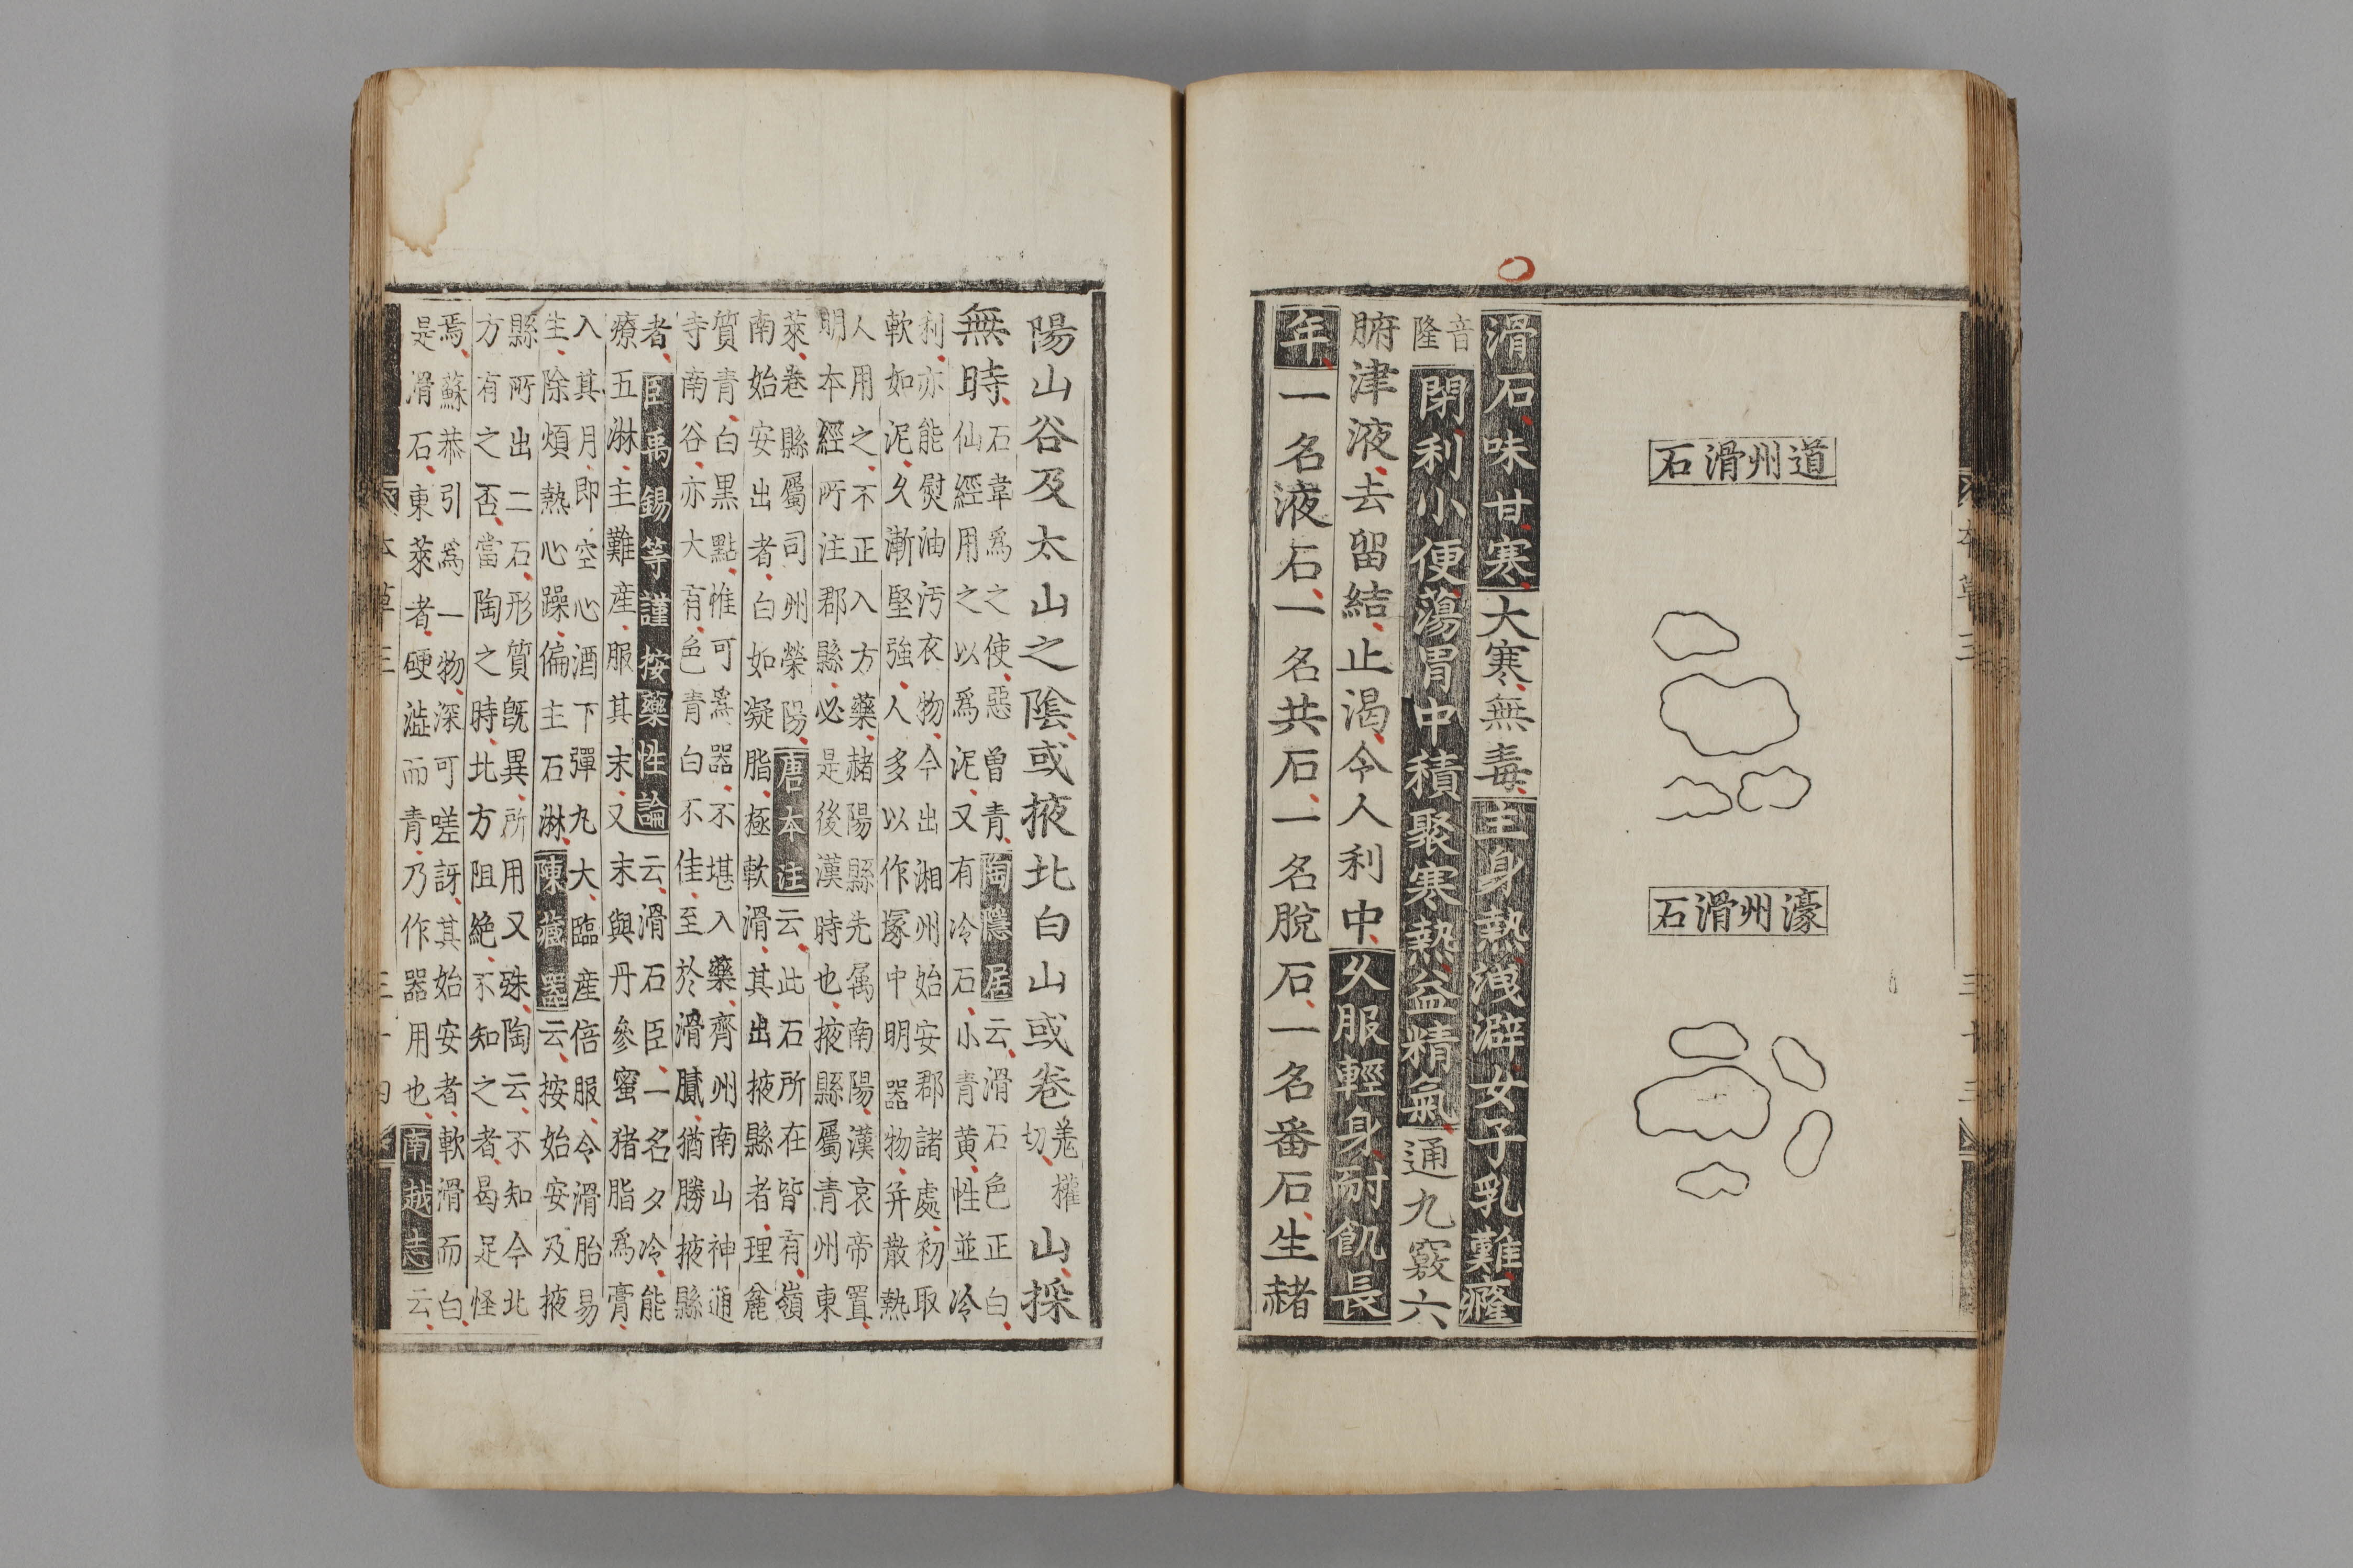 道州滑石
濠州滑石
滑石味甘寒大寒無毒主身熱洩澼女子乳難癃
音
隆
閉利小便蕩胃中積聚寒熱益精氣通九竅六
腑津液去留結止渴令人利中久服輕身耐飢長
年一名液石一名共石一名脫石一名番石生赭
陽山谷及太山之陰或掖北白山或卷
羗權
切
山採
無時
石韋爲之使惡曽青陶隱居云滑石色正白
仙經用之以爲泥又有冷石小青黄性並冷
利亦能熨油汚衣物今出湘州始安郡諸處初取
軟如泥久漸堅強人多以作塚中明器物并散熱
人用之不正入方藥赭陽縣先属南陽漢哀帝置
明本經所注郡縣必是後漢時也掖縣屬青州東
萊卷縣屬司州榮陽唐本注云此石所在皆有嶺
南始安出者白如凝脂極軟滑其出掖縣者理麄
質青白黒點惟可爲器不堪入藥齊州南山神通
寺南谷亦大有色青白不佳至於滑膩猶勝掖縣
者臣禹錫等謹按藥性論云滑石臣一名夕冷能
療五淋主難産服其末又末與丹參蜜猪脂爲膏
入其月即空心酒下彈丸大臨産倍服令滑胎易
生除煩熱心躁偏主石淋陳藏器云按始安及掖
縣所出二石形質既異所用又殊陶云不知今北
方有之否當陶之時北方阻絶不知之者曷足怪
焉蘇恭引爲一物深可嗟訝其始安者軟滑而白
是滑石東萊者硬澁而青乃作器用也南越志云